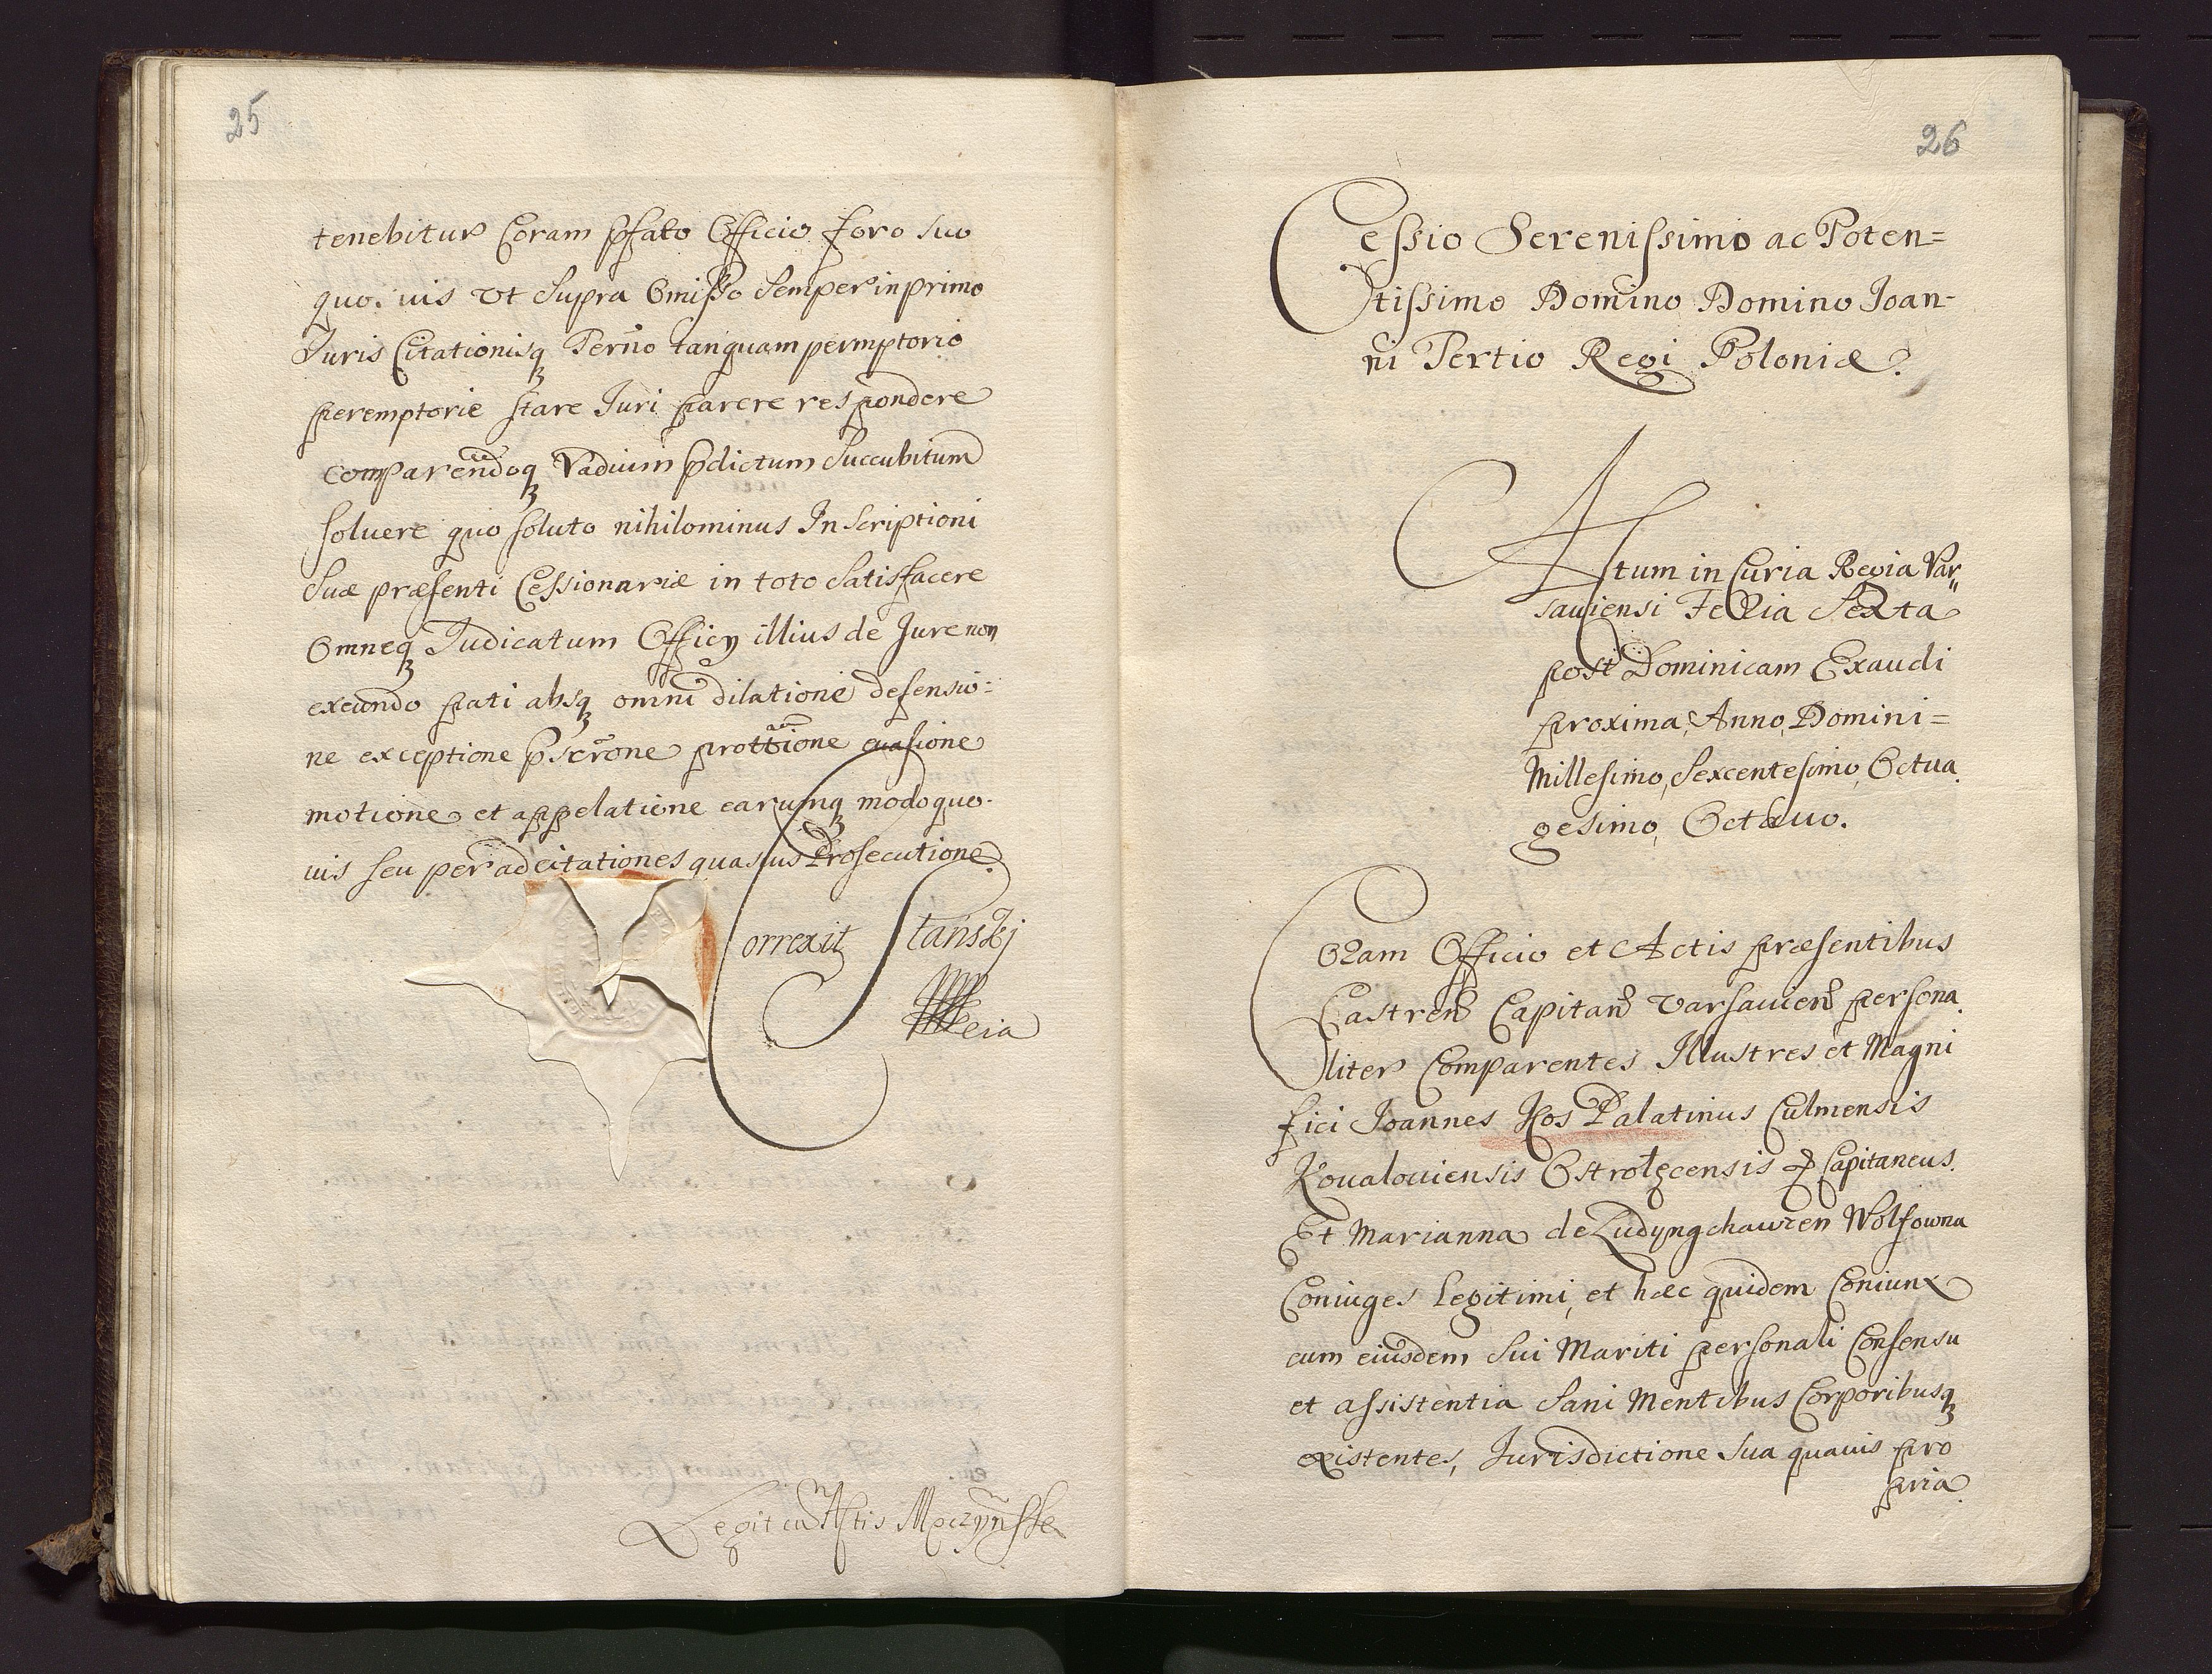 25
tenebitur Coram pfato Officio foro suo
quo: uis Vt Supra Omisso Semper in primo
Iuris Citationisq Termo tanquam permptorio
peremptorie stare Iuri parere respondere
comparendoq Vadium pdictum Succubitum
soluere quo soluto nihilominus Inscriptioni
Suæ præsenti Cessionariæ in toto Satisfacere
Omneq Iudicatum Officy illius de Iure non
exeundo pati absq omni dilatione defensio=
ne exceptione pscrone prottione euasione
motione et appelatione earumq modo quo-
uis seu per adcitationes quasuis Prosecutione
Correxit Stanskj
Legit cu Actis
26
Cessio Serenissimo ac Poten=
tissimo Domino Domino Ioan-
ni Tertio Regi Poloniæ.
Actum in Curia Regia Var"
sauiensi Feria Sexta
post Dominicam Exaudi
proxima, Anno, Domini=
Millesimo, Sexcentesimo, Octua.
gesimo, Octauo.
Coram Officio et Actis præsentibus
Castren Capitan Varsauien persona.
liter Comparentes Illustres et Magni
fici Ioannes Kos Palatinus Culmensis
Kowalouiensis Ostrołęcensis & Capitaneus.
Et Marianna de Ludyngchawzen Wolfowna
Coniuges Legitimi, et hæc quidem Coniunx
cum eiusdem Sui Mariti personali Consensu
et assistentia Sani Mentibus Corporibusq
existentes, Iurisdictione Sua quauis pro
pria